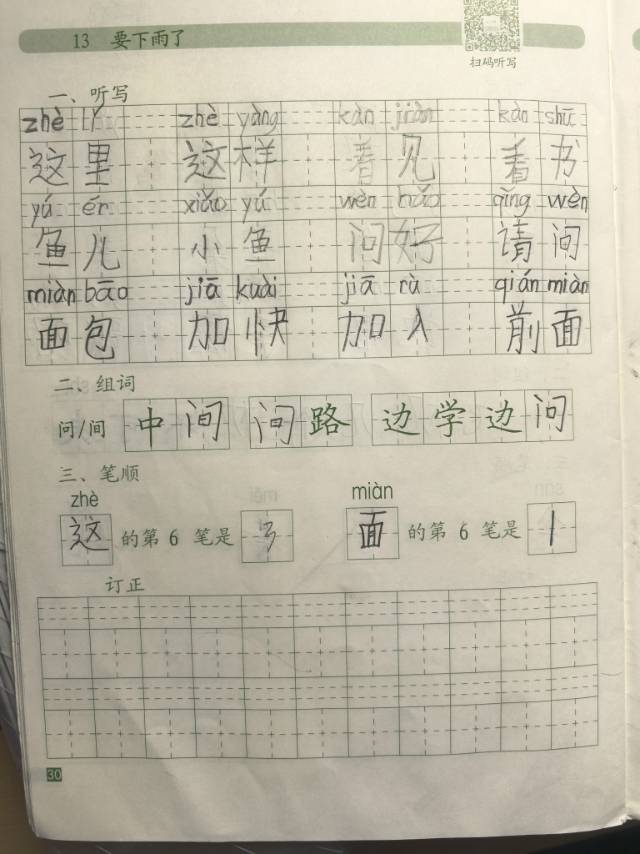 13 要下雨了
扫码听写
一、听写
zhè lǐ zhè yàng kàn jiàn kàn shū
这里 这样 看见 看书
yú ér xiǎo yú wèn hǎo qǐng wèn
鱼儿 小鱼 问好 请问
miàn bāo jiā kuài jiā rù qián miàn
面包 加快 加入 前面
二、组词
问/间 中间 问路 边学边问
三、笔顺
zhè miàn
这 的第 6 笔是 ㄋ 面 的第 6 笔是 丨
订正
30